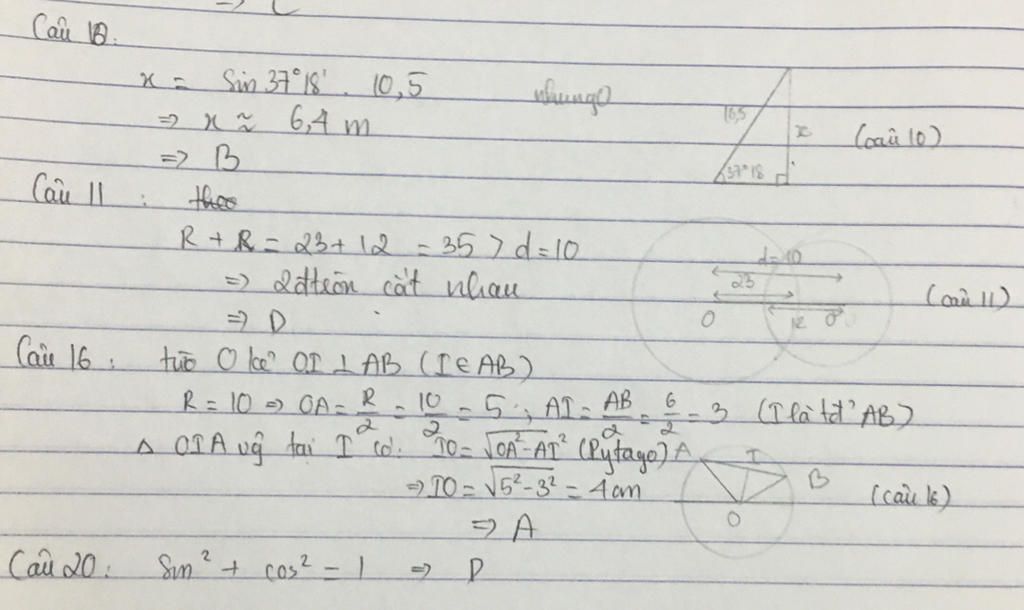 => C
Câu 10:
x = Sin 37°18' . 10,5
=> x ≈ 6,4 m
=> B
10,5
x
37°18
(câu 10)
Câu 11 : theo
R + R = 23 + 12 = 35 > d = 10
=> 2 đtròn cắt nhau
=> D
d = 10
23
O
12
O'
(câu 11)
Câu 16 : từ O kẻ OI ⊥ AB (I ∈ AB)
R = 10 => OA = R/2 = 10/2 = 5 ; AI = AB/2 = 6/2 = 3 (I là tđ' AB)
Δ OIA vg tại I có: IO = √OA² - AI² (Pytago)
=> IO = √5² - 3² = 4cm
=> A
A
I
B
O
(câu 16)
Câu 20: Sin² + cos² = 1 => D